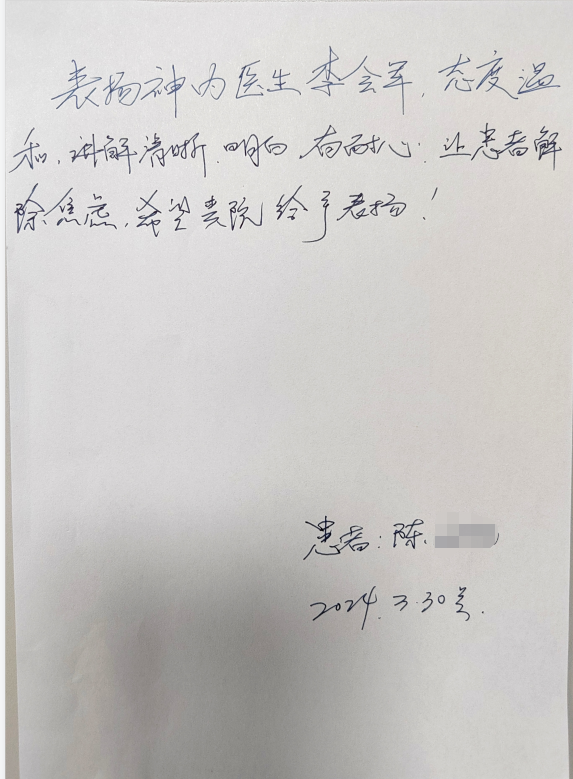 表扬神内医生李会军，态度温
和，讲解清晰，明白，有耐心，让患者解
除焦虑，希望贵院给予表扬！
患者：陈
2024.3.30号.